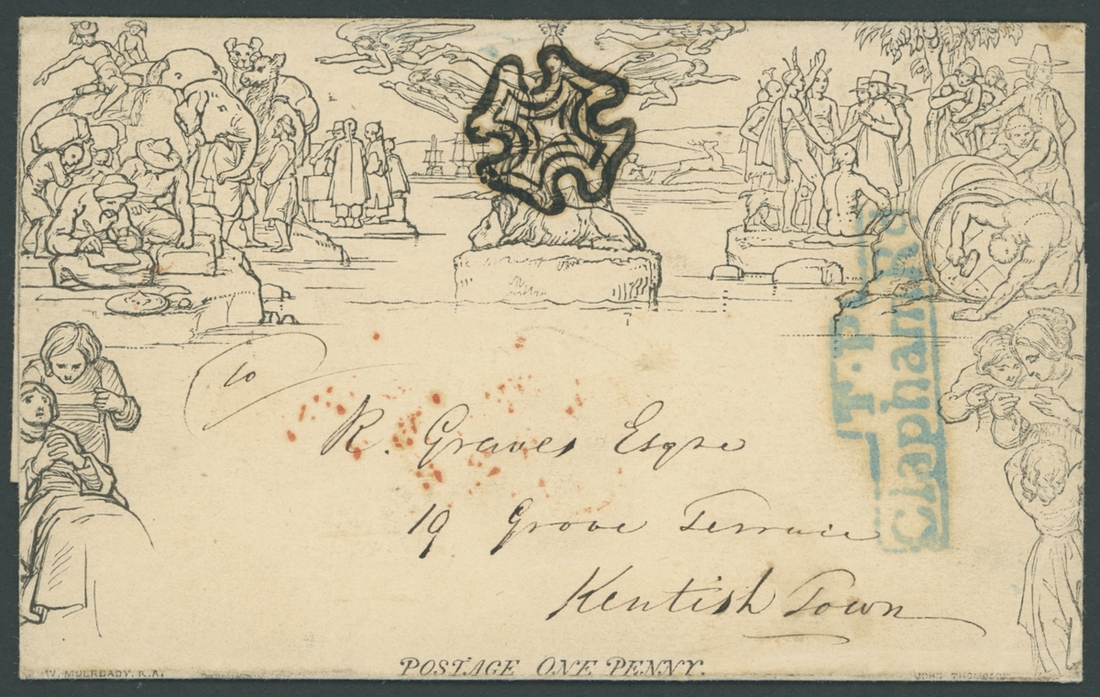 to
R. Graves Esqre
19 Grove Terrace
Kentish Town
T.P.
Clapham
POSTAGE ONE PENNY.
W. MULREADY. R.A.
JOHN THOMPSON